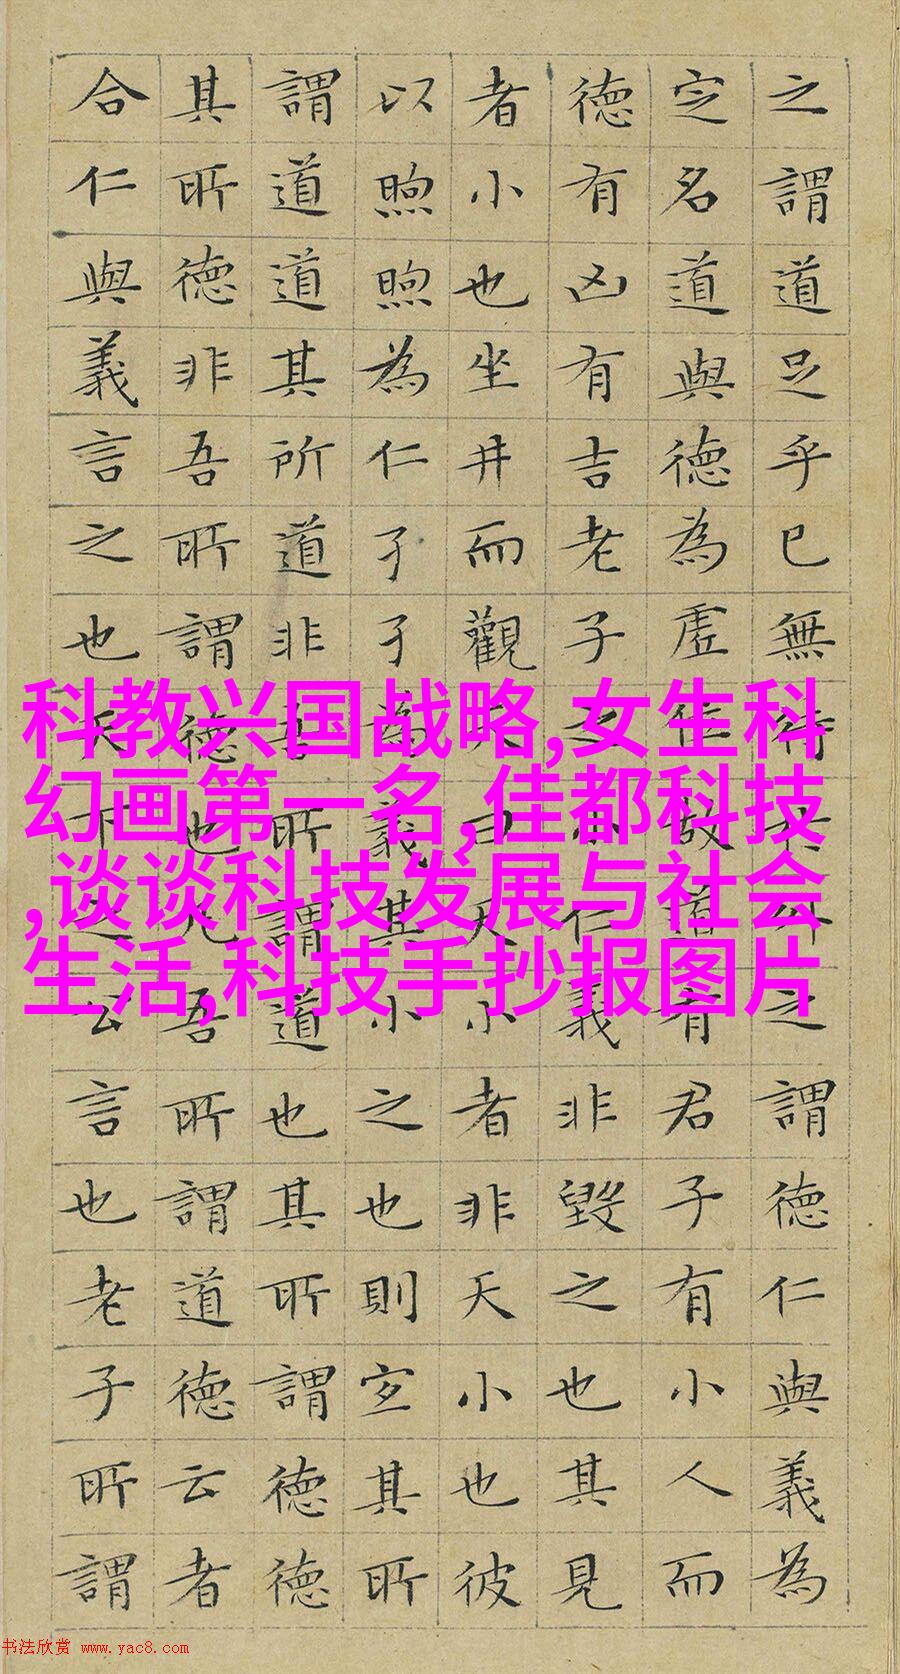 之謂道足乎已無待於外之謂德仁與義為
定名道與德為虛位故道有君子有小人而
德有凶有吉老子之小仁義非毀之也其見
者小也坐井而觀天曰天小者非天小也彼
以煦煦為仁孑孑為義其小之也則宜其所
謂道道其所道非吾所謂道也其所謂德德
其所德非吾所謂德也凡吾所謂道德云者
合仁與義言之也天下之公言也老子所謂
科教兴国战略,女生科
幻画第一名,佳都科技
,谈谈科技发展与社会
生活,科技手抄报图片
书法欣赏 www.yac8.com